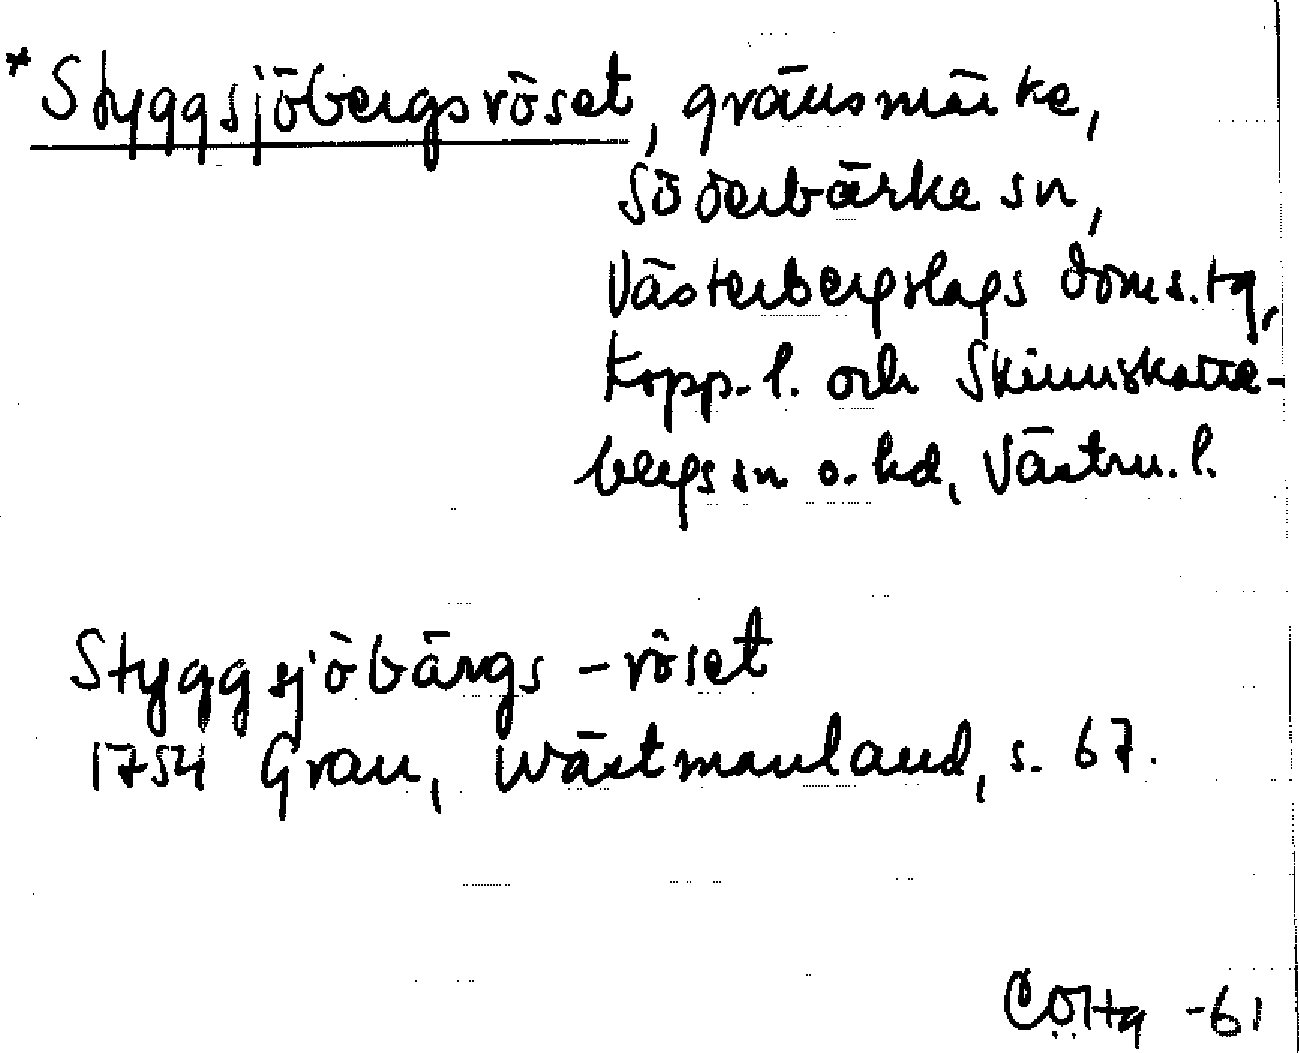 *Styggsjöbergsröset, gränsmärke,
Söderbärke sn,
Västerbergslags doms.tg,
Kopp. l. och Skinnskatte-
bergs sn o. hd, Västm. l.
Styggsjöbärgs-röset
1754 Grau, Wästmanland, s. 67.
-61